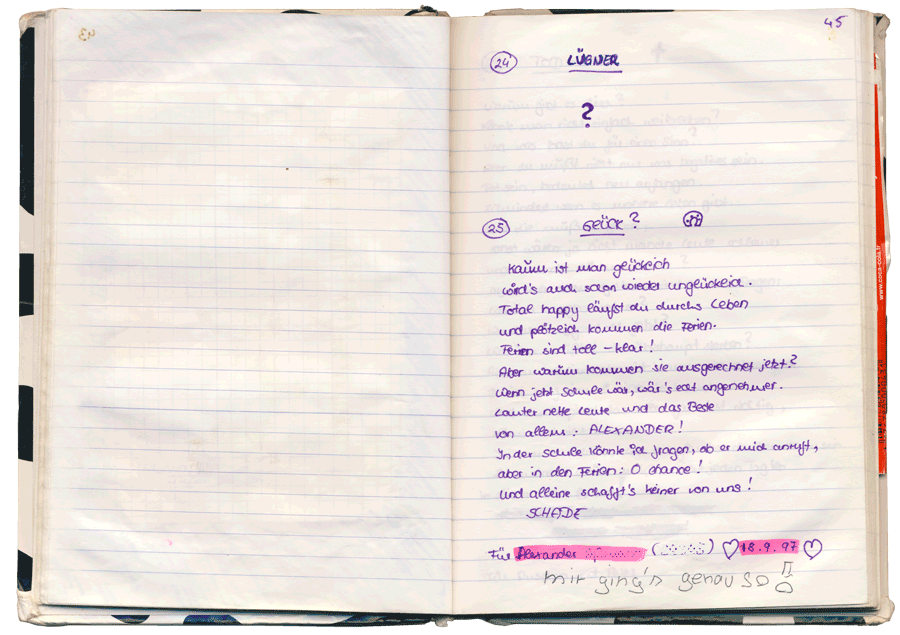 45
24 LÜGNER
?
25 GLÜCK?
Kaum ist man glücklich
wird's auch schon wieder unglücklich.
Total happy läufst du durchs Leben
und plötzlich kommen die Ferien.
Ferien sind toll – klar!
Aber warum kommen sie ausgerechnet jetzt?
Wenn jetzt Schule wär, wär's echt angenehmer.
Lauter nette Leute und das Beste
von allem: ALEXANDER!
In der Schule könnte ich fragen, ob er mich anruft,
aber in den Ferien: 0 chance!
Und alleine schafft's keiner von uns!
SCHADE
Für Alexander ( ) 18.9.97
mir ging's genau so
www.coca-cola.fr